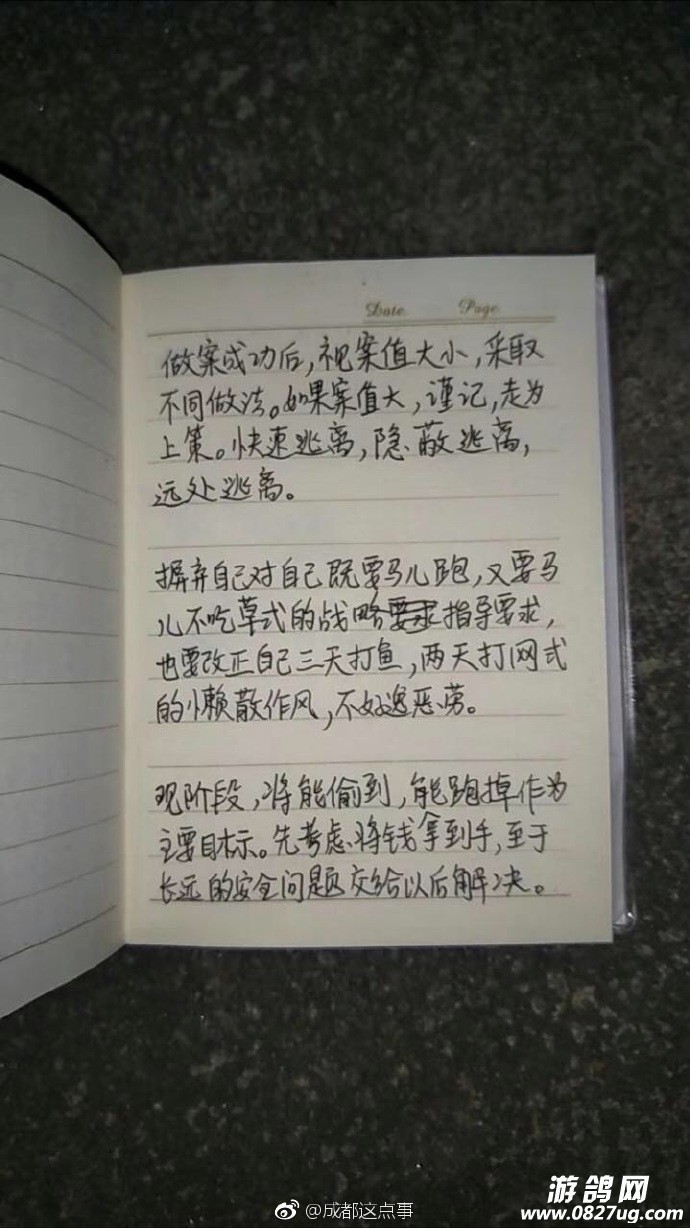 Date Page
做案成功后，视案值大小，采取
不同做法。如果案值大，谨记，走为
上策。快速逃离，隐蔽逃离，
远处逃离。
摒弃自己对自己既要马儿跑，又要马
儿不吃草式的战略要求指导要求，
也要改正自己三天打鱼，两天打网式
的懒散作风，不好逸恶劳。
现阶段，将能偷到，能跑掉作为
主要目标。先考虑将钱拿到手，至于
长远的安全问题交给以后解决。
@成都这点事
游鸽网
www.0827ug.com